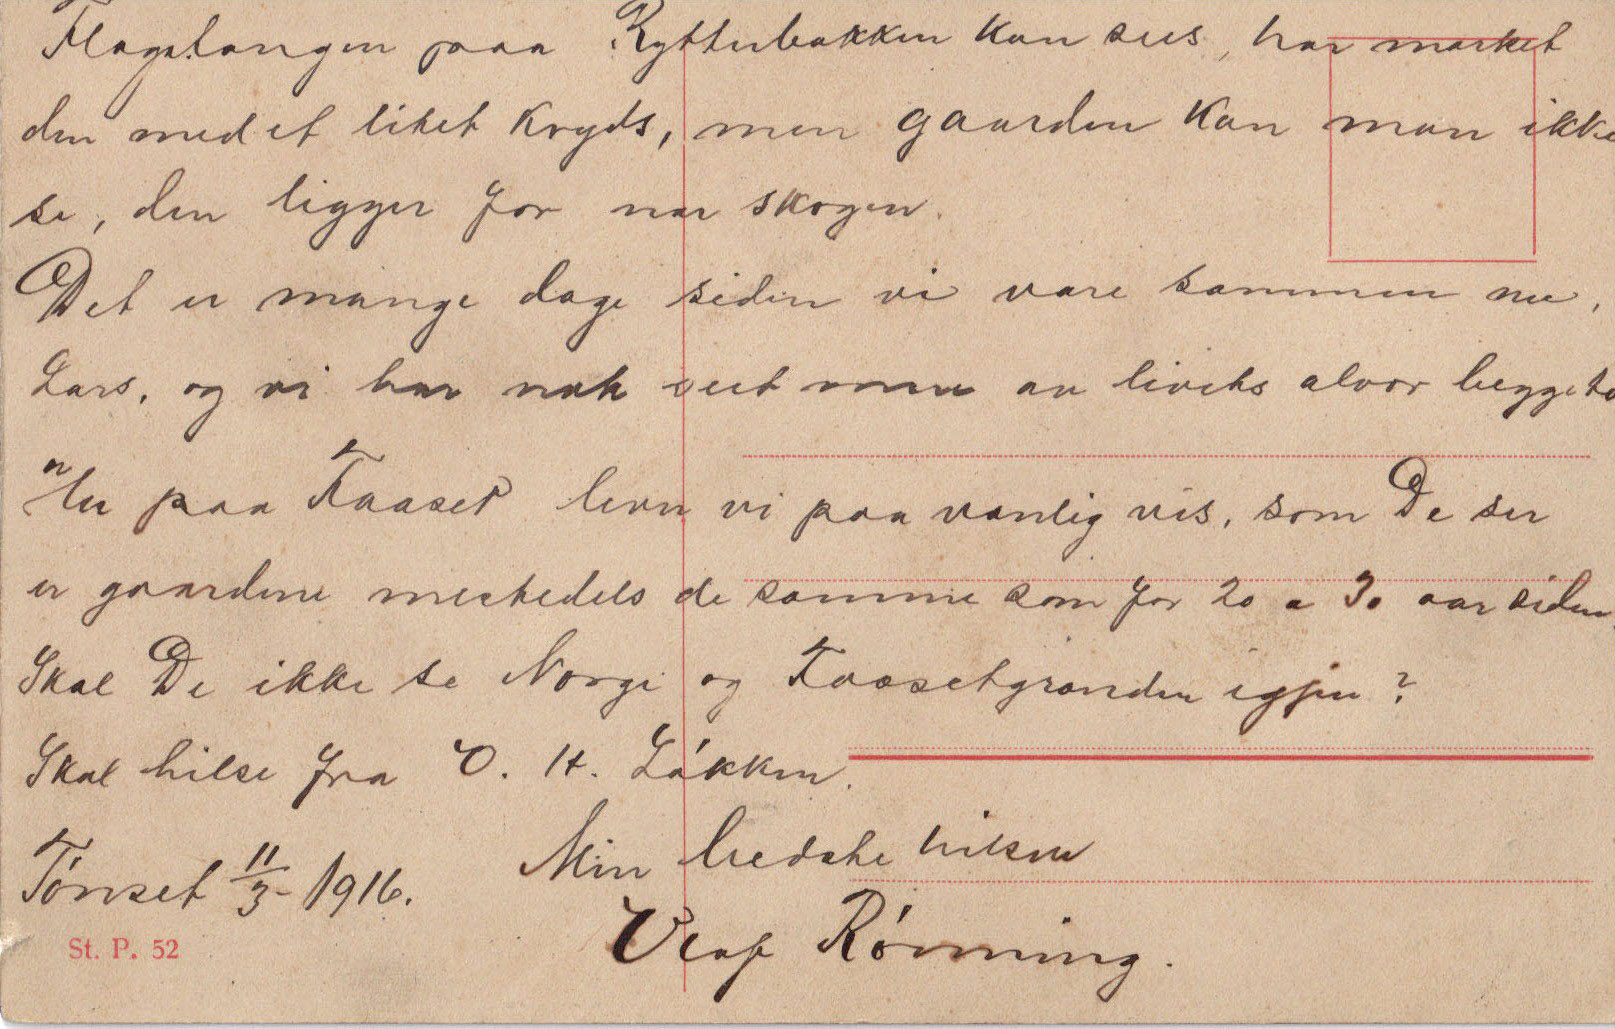 Flagstangen paa Rytterbakken kan sees, har merket
den med et litet Kryds, men gaarden kan man ikke
se, den ligger for nær skogen.
Det er mange dage siden vi vare sammen nu,
Lars, og vi har nok seet av livets alvor begge to
Nu paa Faaset lever vi paa vanlig vis, som De ser
er gaardene mestedels de samme som for 20 a 30 aar siden.
Skal De ikke se Norge og Faasetgranden igjen?
Skal hilse fra O. H. Løkken.
Min bedste hilsen
Tønset 11/3 - 1916.
Olaf Rønning.
St. P. 52